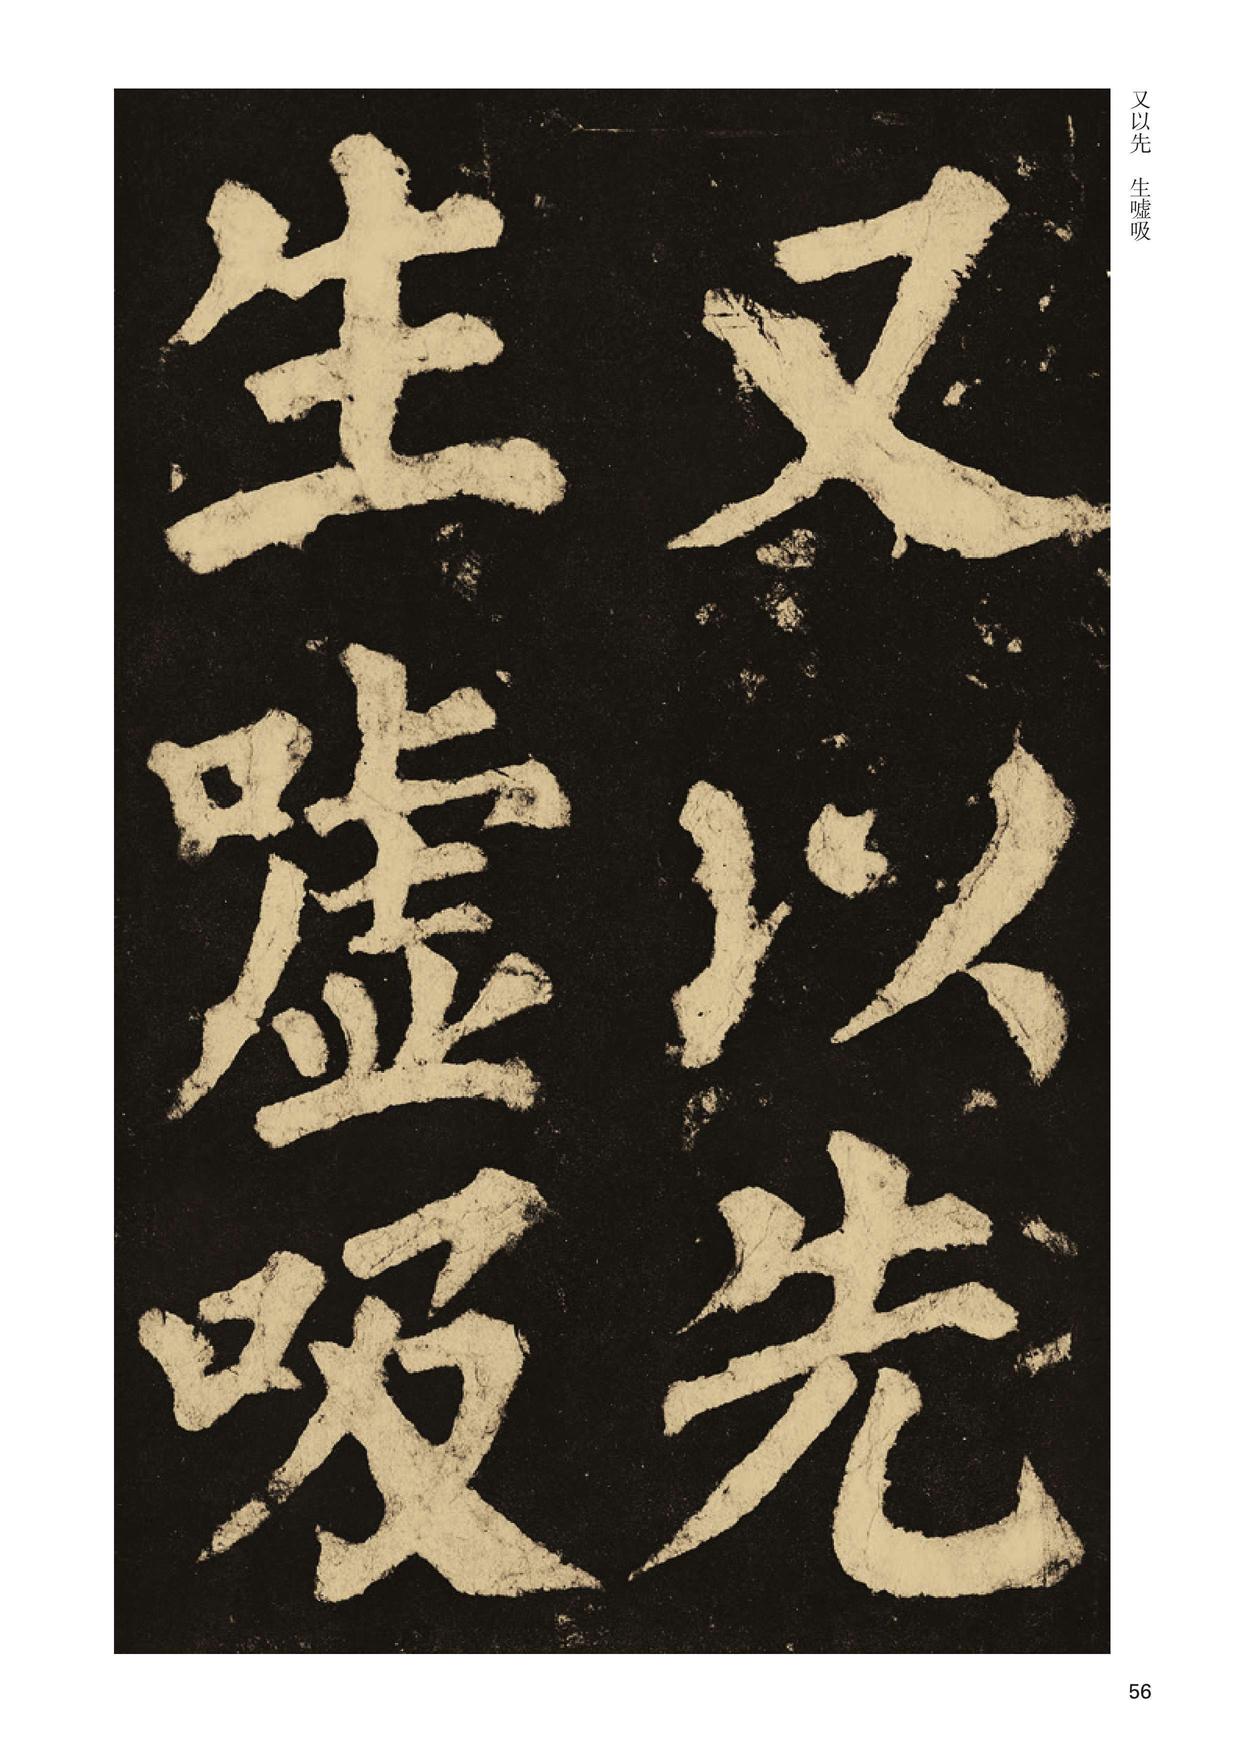 又以先　生嘘吸
又以先
生嘘吸
56